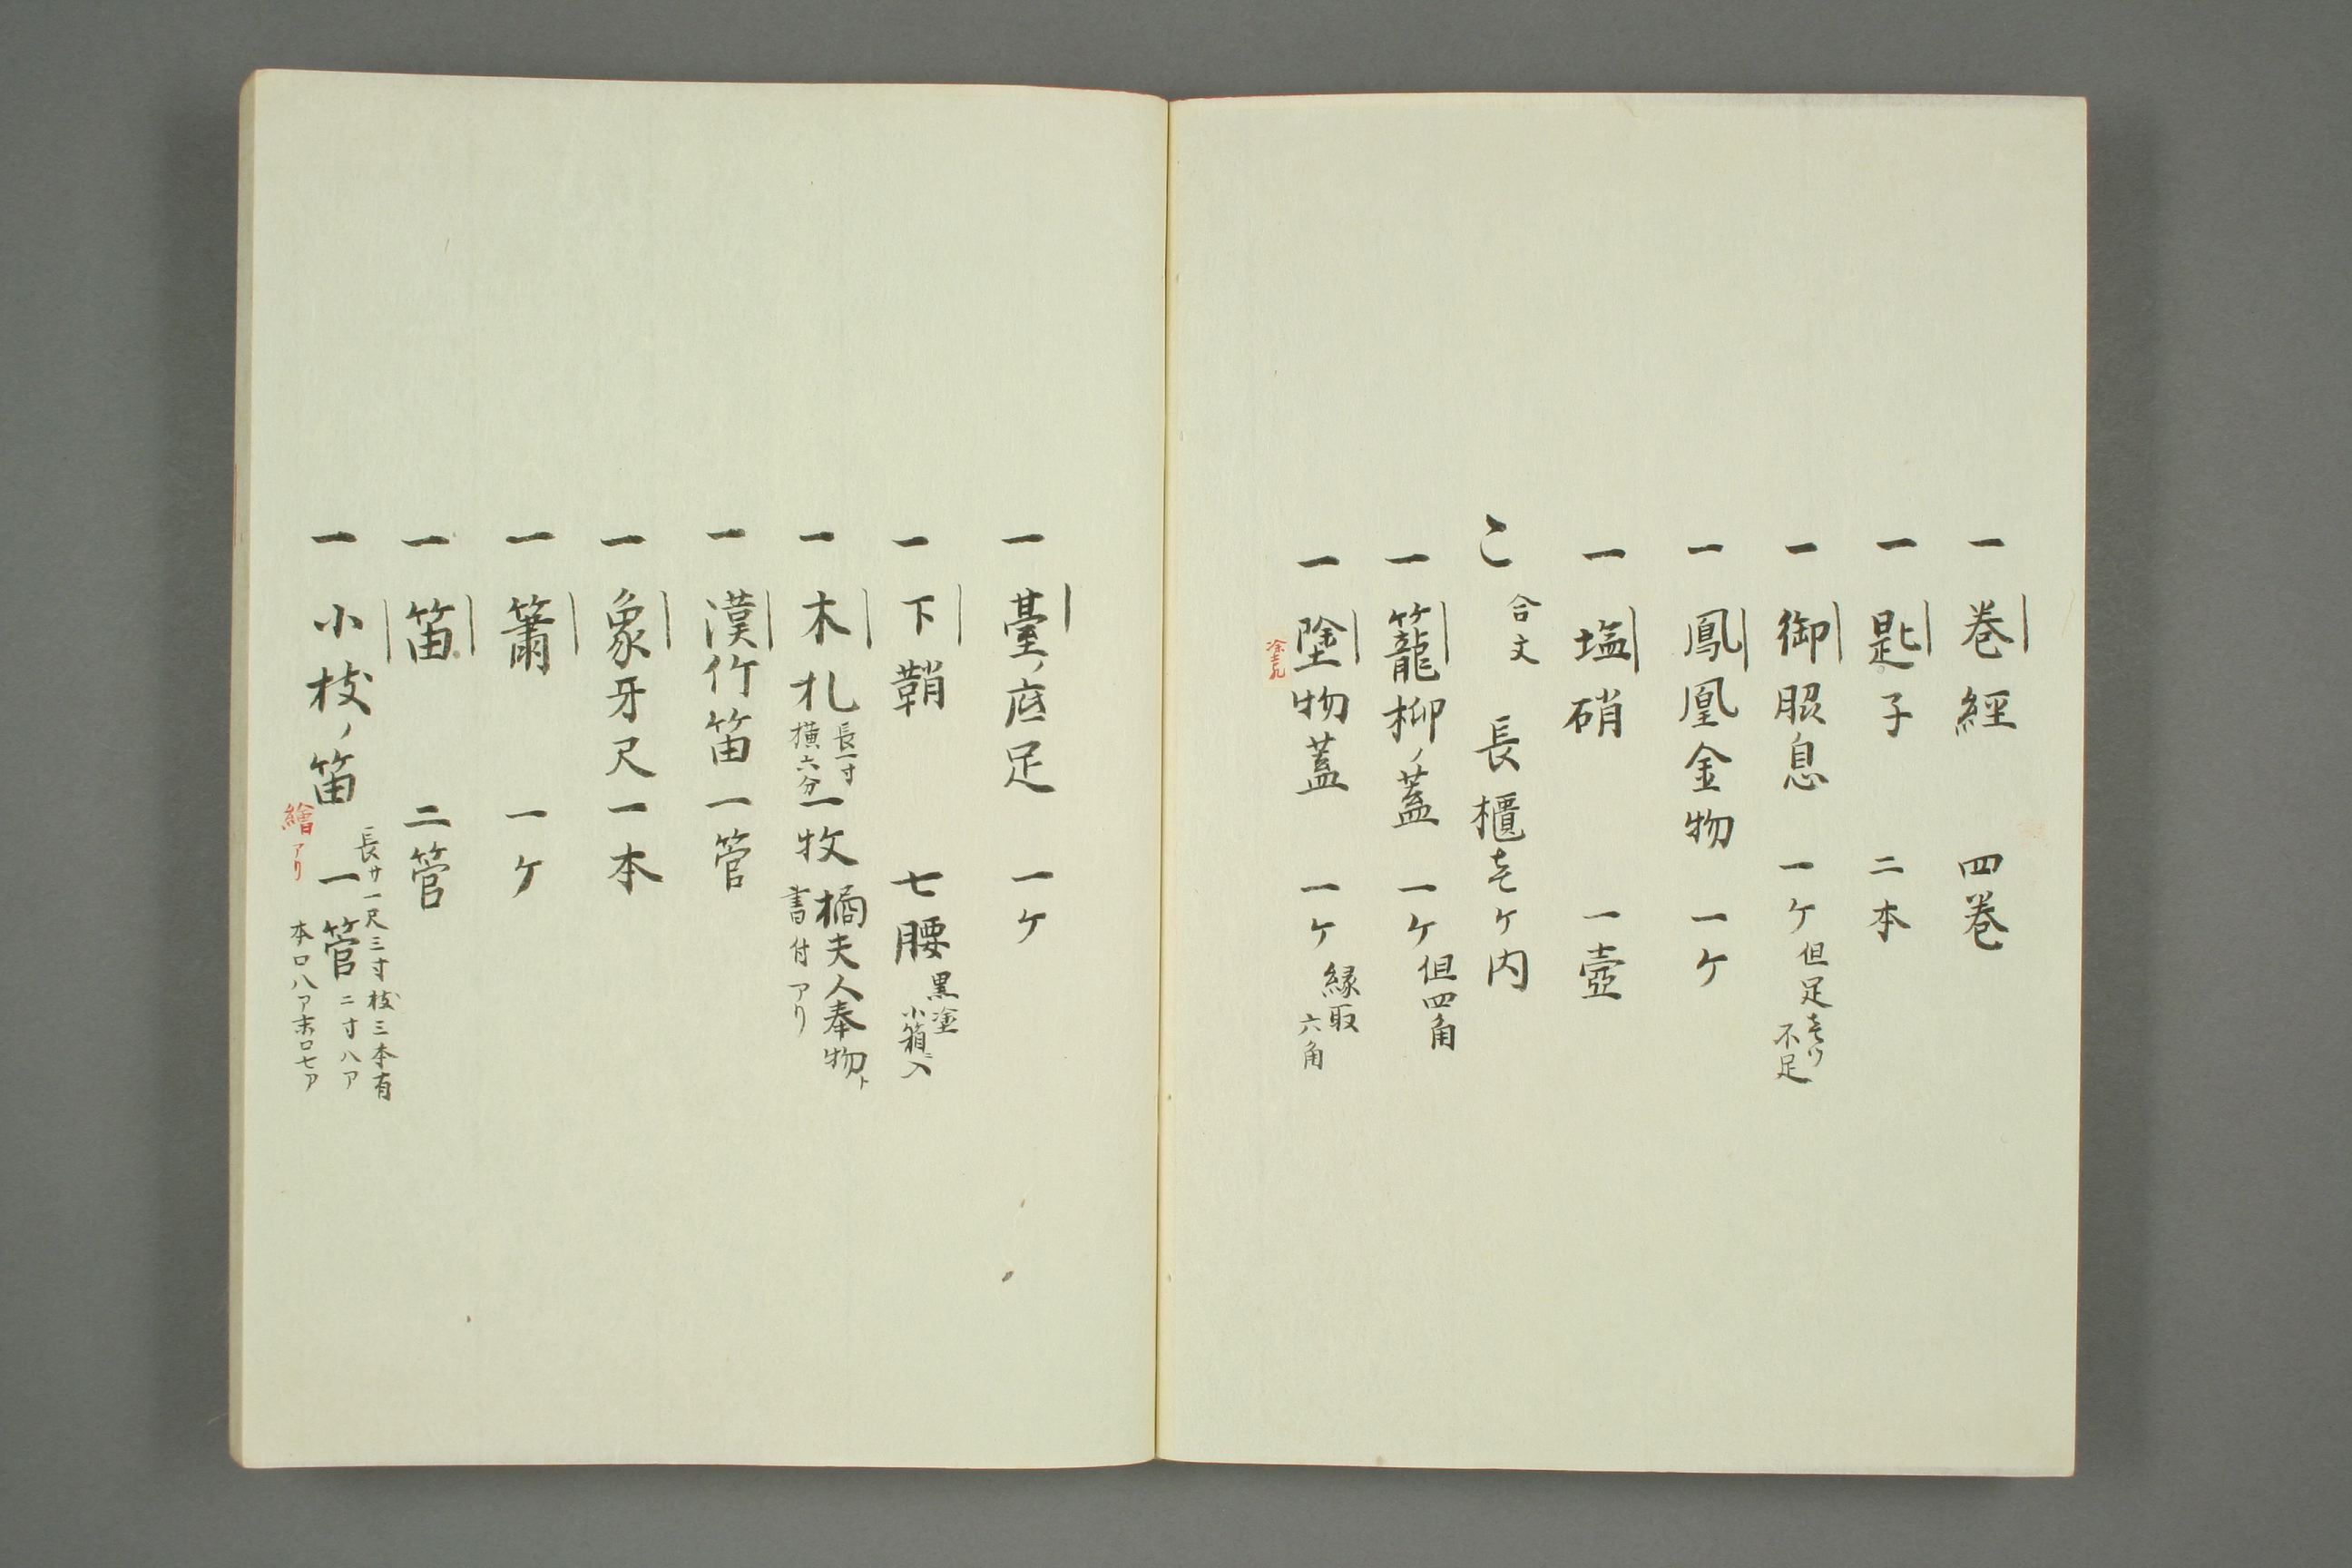 一 巻經 四巻
一 匙子 二本
一 御脇息 一ケ 但足壱ツ不足
一 鳳凰金物 一ケ
一 塩硝 一壺
合文
こ 長櫃壱ケ内
一 籠柳ノ蓋 一ケ 但四角
一 陞物蓋 一ケ 縁取六角
一 臺ノ底足 一ケ
一 下鞘 七腰 黒塗小箱ニ入
一 木札 長一寸横六分 一牧 橘夫人奉物ト書付アリ
一 漢竹笛 一管
一 象牙尺 一本
一 簫 一ケ
一 笛 二管
一 小枝ノ笛 一管 長サ一尺三寸枝三本有 二寸八ア 本口八ア末口七ア
繪アリ